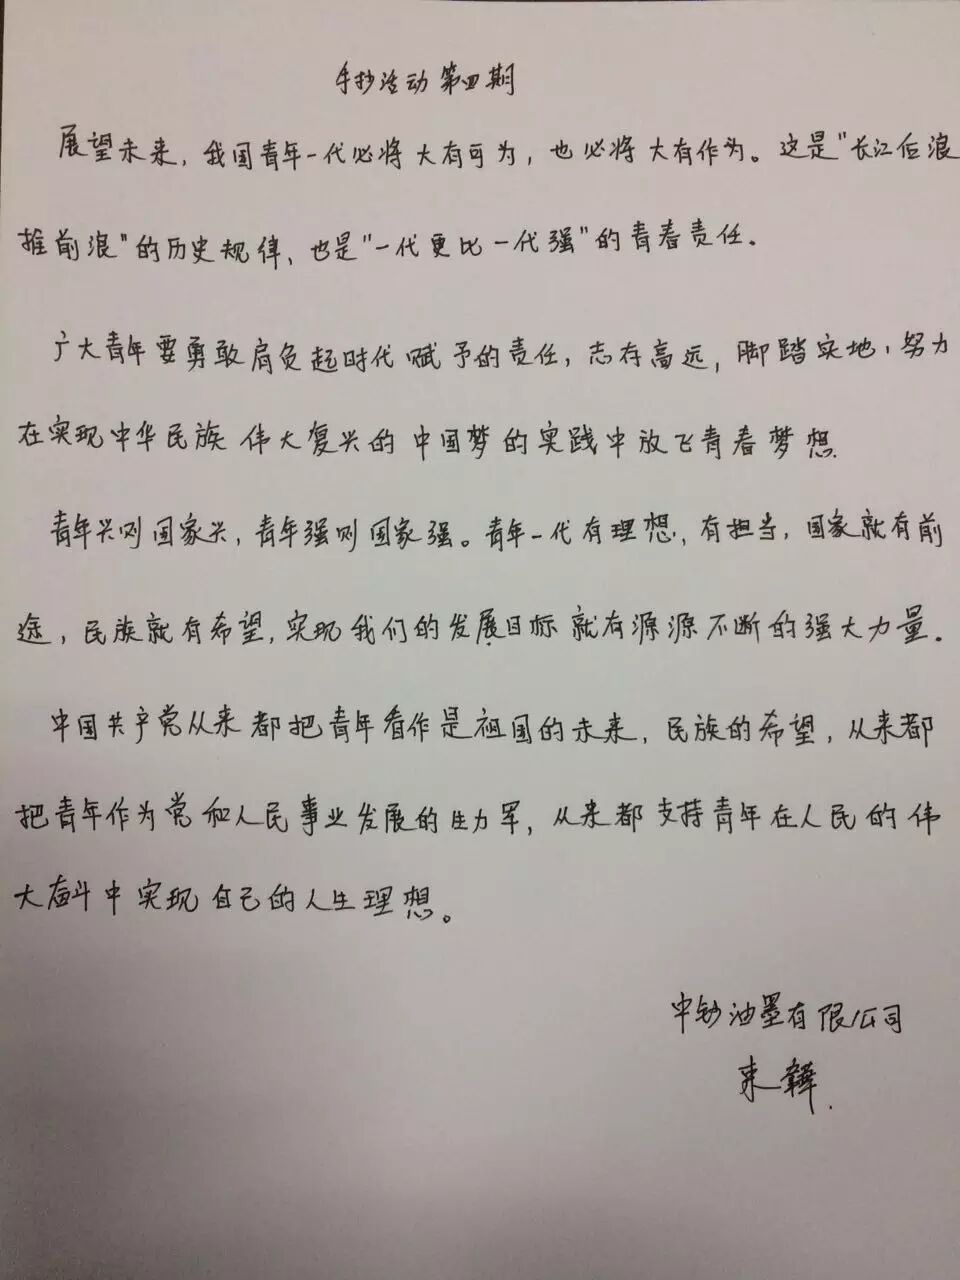 手抄活动第四期
展望未来，我国青年一代必将大有可为，也必将大有作为。这是“长江后浪
推前浪”的历史规律，也是“一代更比一代强”的青春责任。
广大青年要勇敢肩负起时代赋予的责任，志存高远，脚踏实地，努力
在实现中华民族伟大复兴的中国梦的实践中放飞青春梦想
青年兴则国家兴，青年强则国家强。青年一代有理想，有担当，国家就有前
途，民族就有希望，实现我们的发展目标就有源源不断的强大力量。
中国共产党从来都把青年看作是祖国的未来，民族的希望，从来都
把青年作为党和人民事业发展的生力军，从来都支持青年在人民的伟
大奋斗中实现自己的人生理想。
中钞油墨有限公司